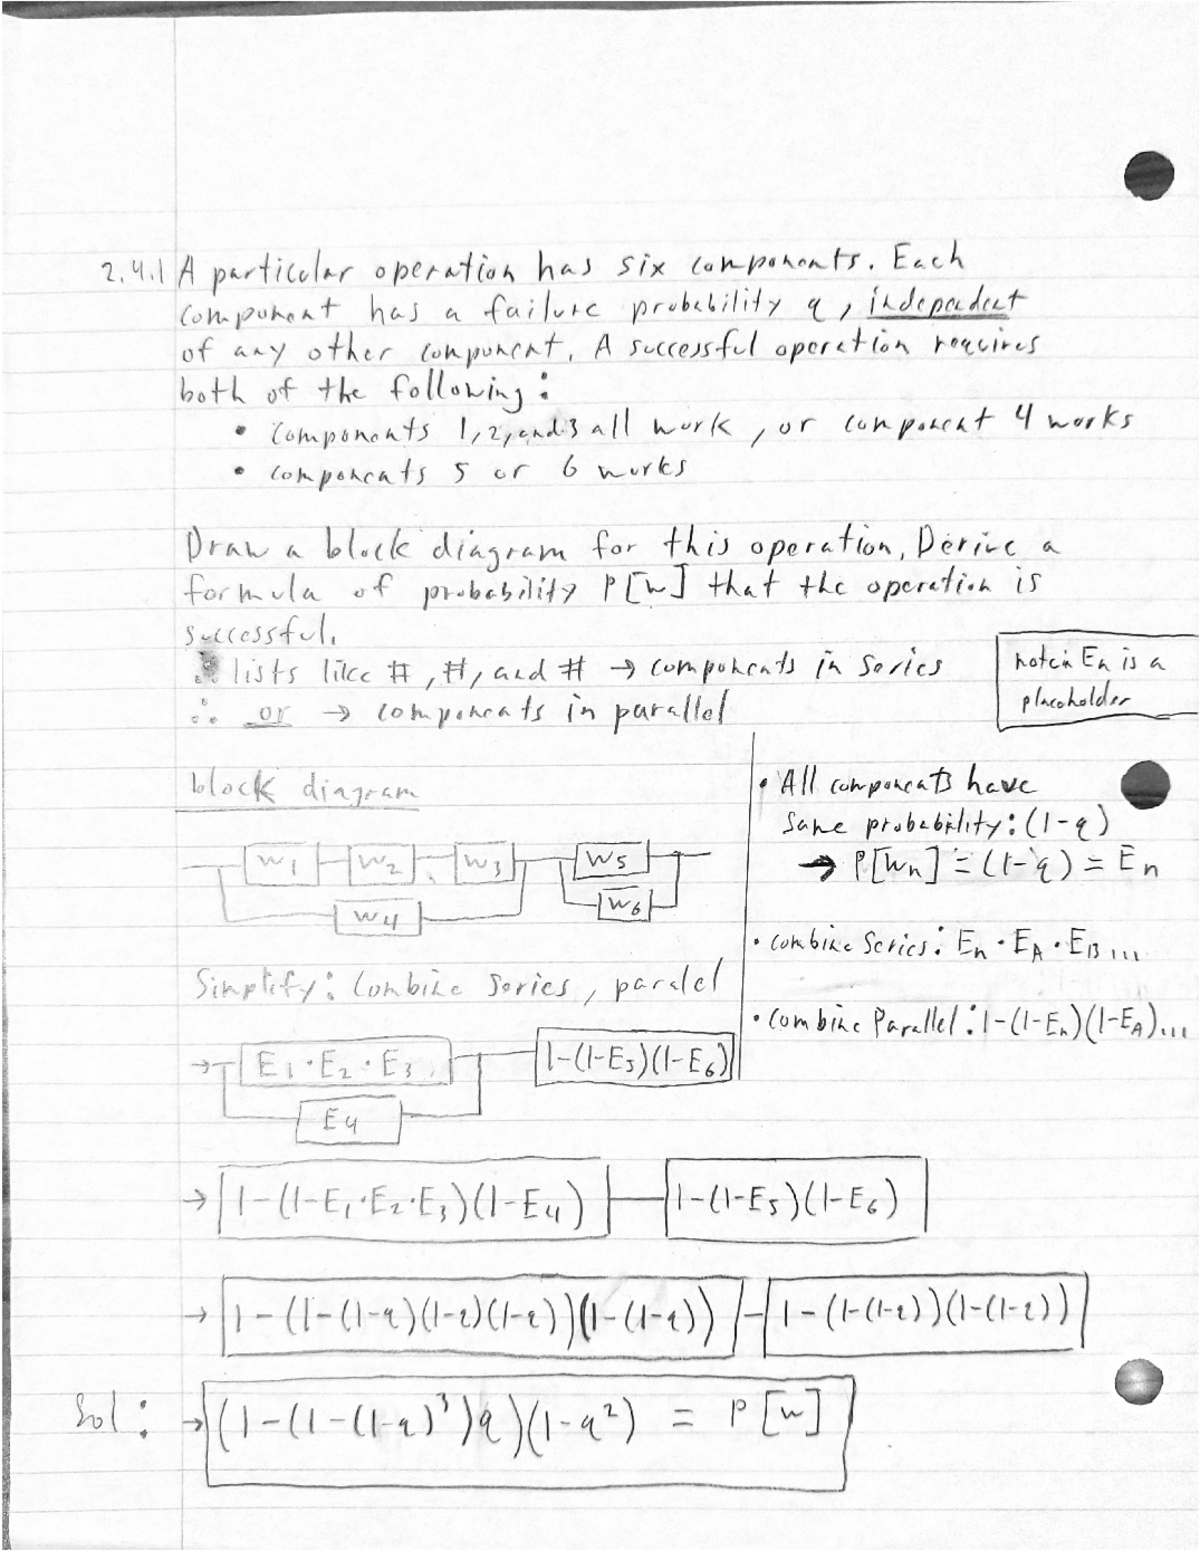 2.4.1 A particular operation has six components. Each
component has a failure probability q, independent
of any other component. A successful operation requires
both of the following:
• components 1, 2, and 3 all work, or component 4 works
• components 5 or 6 works
Draw a block diagram for this operation. Derive a
formula of probability P[w] that the operation is
successful.
∴ lists like #, #, and # → components in series
∴ or → components in parallel
note: En is a
placeholder
block diagram
W1 W2 W3 W5
W4 W6
Simplify: Combine series, paralel
• All components have
same probability: (1-q)
→ P[Wn] = (1-q) = En
• combine Series: En · EA · EB ...
• combine Parallel: 1-(1-En)(1-EA)...
→ E1 · E2 · E3 1-(1-E5)(1-E6)
E4
→ 1-(1-E1·E2·E3)(1-E4) 1-(1-E5)(1-E6)
→ 1-(1-(1-q)(1-q)(1-q))(1-(1-q)) 1-(1-(1-q))(1-(1-q))
Sol: → (1-(1-(1-q)³)q)(1-q²) = P[w]